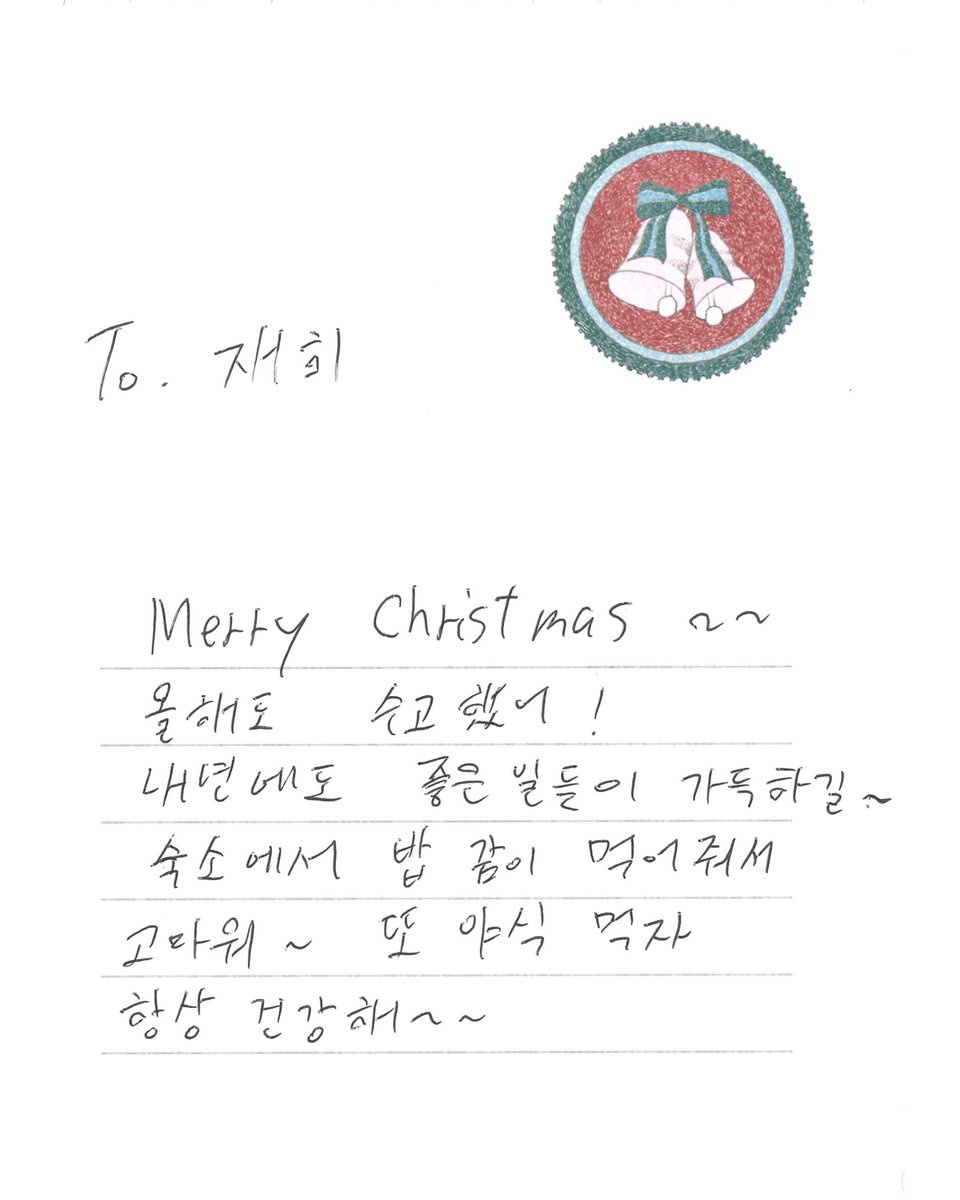 To. 재희
Merry Christmas ~~
올해도 수고했어!
내년에도 좋은 일들이 가득하길~
숙소에서 밥 같이 먹어줘서
고마워~ 또 야식 먹자
항상 건강해~~